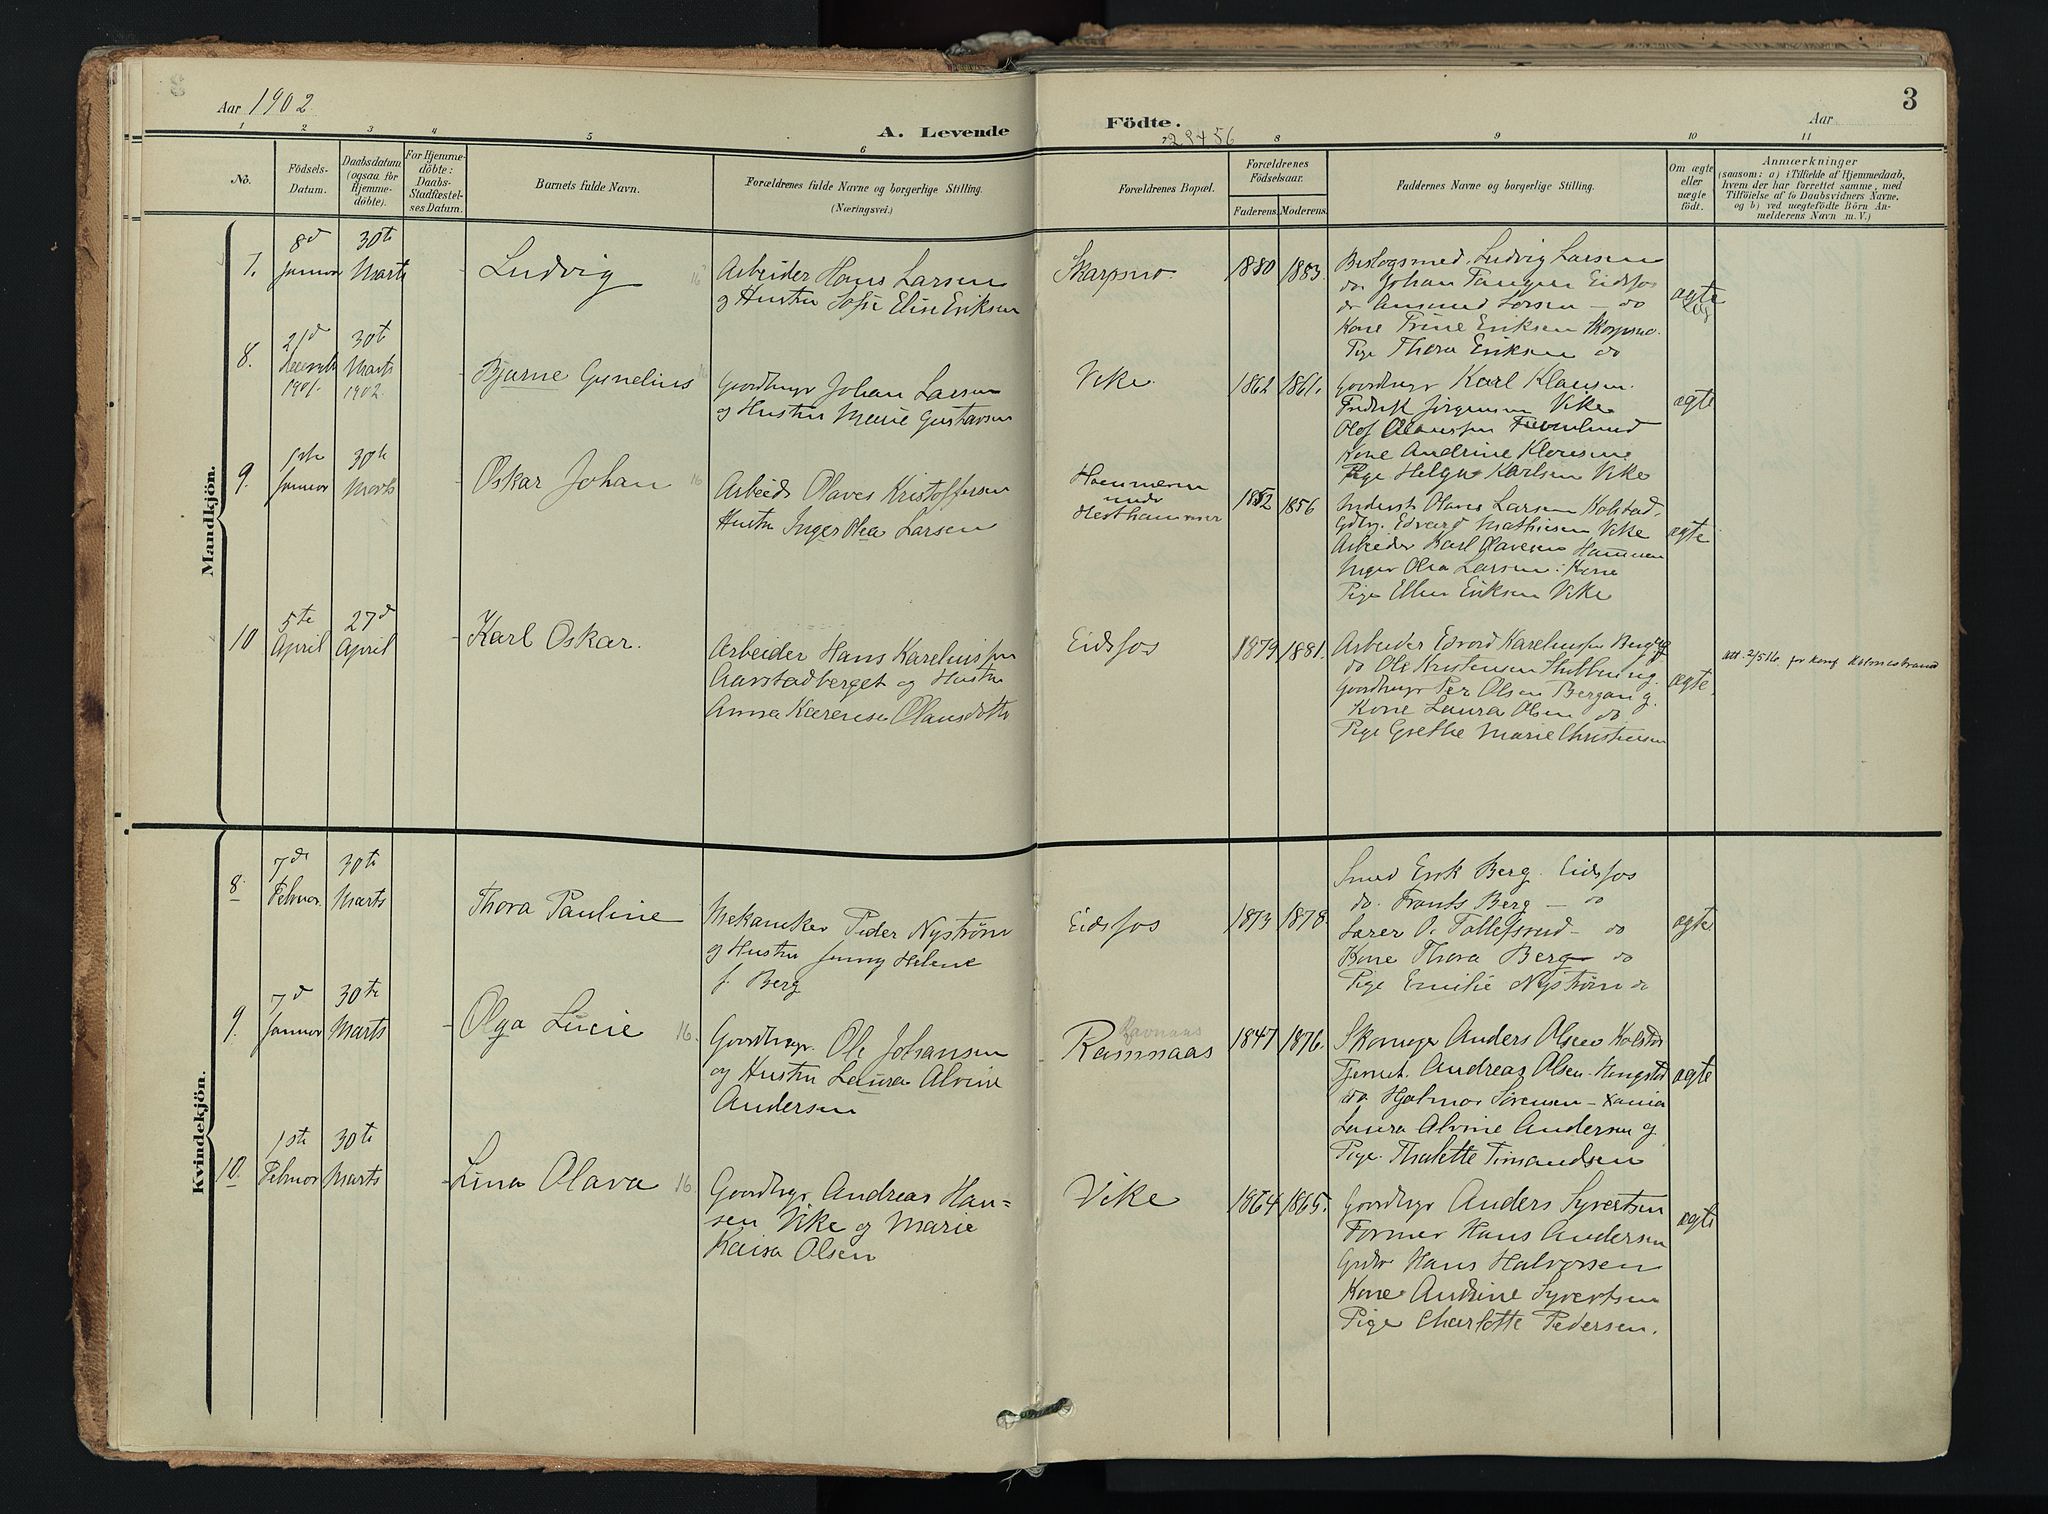 Aar 1902
A. Levende
Födte.
29456
Aar
3
1
2
3
4
5
6
8
9
10
11
Nò.
Födsels-
Datum.
Daabsdatum
(ogsaa for
Hjemme-
döbte).
For Hjemme-
döbte:
Daabs-
Stadfæstel-
ses Datum.
Barnets fulde Navn.
Forældrenes fulde Navne og borgerlige Stilling.
(Næringsvei.)
Forældrenes Bopæl.
Forældrenes
Födselsaar.
Faderens.
Moderens.
Faddernes Navne og borgerlige Stilling.
Om ægte
eller
uægte
födt.
Anmærkninger
(saasom: a) i Tilfælde af Hjemmedaab,
hvem der har forrettet samme, med
Tilföielse af to Daabsvidners Navne,
og b) ved uægtefödte Börn An-
melderens Navn m. V.)
Mandkjön.
7.
8d
Januar
30te
Marts
Ludvig
16
Arbeider Hans Larsen
og Hustru Sofie Elise Eriksen
Skarpsno.
1880
1883.
Ludvig Larsen
do. Johan Tangen Eidsfos
do Amund Larsen — do
Kone Trine Eriksen Skarpsno.
Pige Thora Eriksen do
ægte
8.
21d
Decemb
1901.
30te
Marts
1902.
Bjarne Gunelius
16
Gaardbrgr Johan Larsen
og Hustru Marie Gustavsen
Vike.
1862
1861.
Gaardbrgr Karl Klausen.
Fredrik Jörgensen Vike
Olof
Kone Andrine
Pige Helga Karlsen Vike
ægte
9.
1ste
Januar
30te
Marts
Oskar Johan
16
Arbeid. Olaves Kristoffersen
Hustru Inger Olea Larsen
Hammeren
under
Hesthammer
1852
1856
Olaves Larsen Kolstad,
Gdbr. Edvard Mathiesen Vike
Arbeider Karl Olavesen Hammen
Inger Olea Larsen: Kone
Pige Ellen Eriksen Vike
ægte
10
5te
April
27d
April
Karl Oskar.
Arbeider Hans Kareliussen
Aarstadberget og Hustru
Anna Karense Olausdotter
Eidsfos
1879
1881.
Arbeider Edvard Kareliussen
do Ole Kristensen
Gaardbrgr Per Olsen Bergan og
Kone Laura Olsen do.
Pige Grethe Marie Christensen
ægte.
att. 2/5 16. for konf.
Kvindekjön.
8.
7de
Februar.
30te
Marts
Thora Pauline
Mekaniker Peder Nyström
og Hustru Jenny Helene
f. Berg
Eidsfos
1873
1878.
Smed Erik Berg. Eidsfos
do. Frants Berg — do
Lærer O. Tollefsrud — do
Kone Thora Berg — do
Pige Emilie Nyström do
ægte
9.
7d
Januar
30te
Marts
Olga Lucie
16.
Gaardbrgr. Ole Johansen
og Hustru Laura Alvine
Andersen
Ravnaas
Ramnaas
1847
1876.
Skomager Anders Olsen Kolstad
Tjernet. Andreas Olsen - Haugstad
do Hjalmar Sörensen - Xania
Laura Alvine Andersen og
Pige. Thalette Timandsen
ægte
10.
1ste
Februar
30te
Marts
Lina Olava
16.
Gaardbrgr Andreas Han=
sen Vike og Marie
Kaisa Olsen
Vike
1864
1865.
Gaardbrgr Anders Syvertsen
Former Hans Andersen
Gdbr Hans Halvorsen
Kone Andrine Syvertsen
Pige Charlotte Pedersen.
ægte